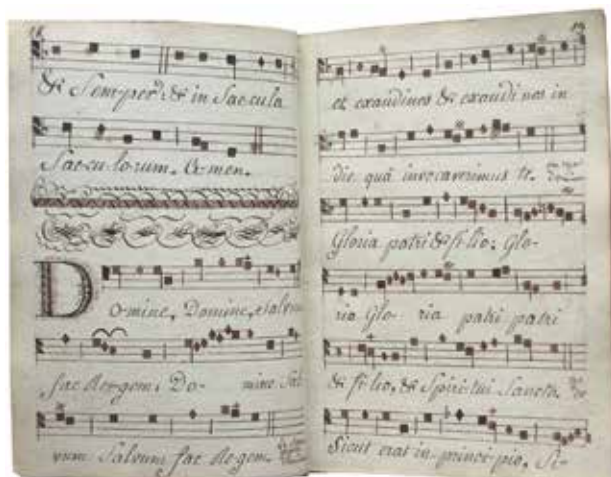 & Semper & in Saecula
Saecu lorum. Amen.
Domine, Domine, salvum
fac Regem. Do- mine Sal
vum Salvum fac Regem.
et exaudinos & exaudi nos in
die quâ invocaverimus te.
Gloria patri & fi lio; Glo-
ria Glo- ria patri patri
& fi lio, & Spiritui Sancto.
Sicut erat in princi pio, Si-